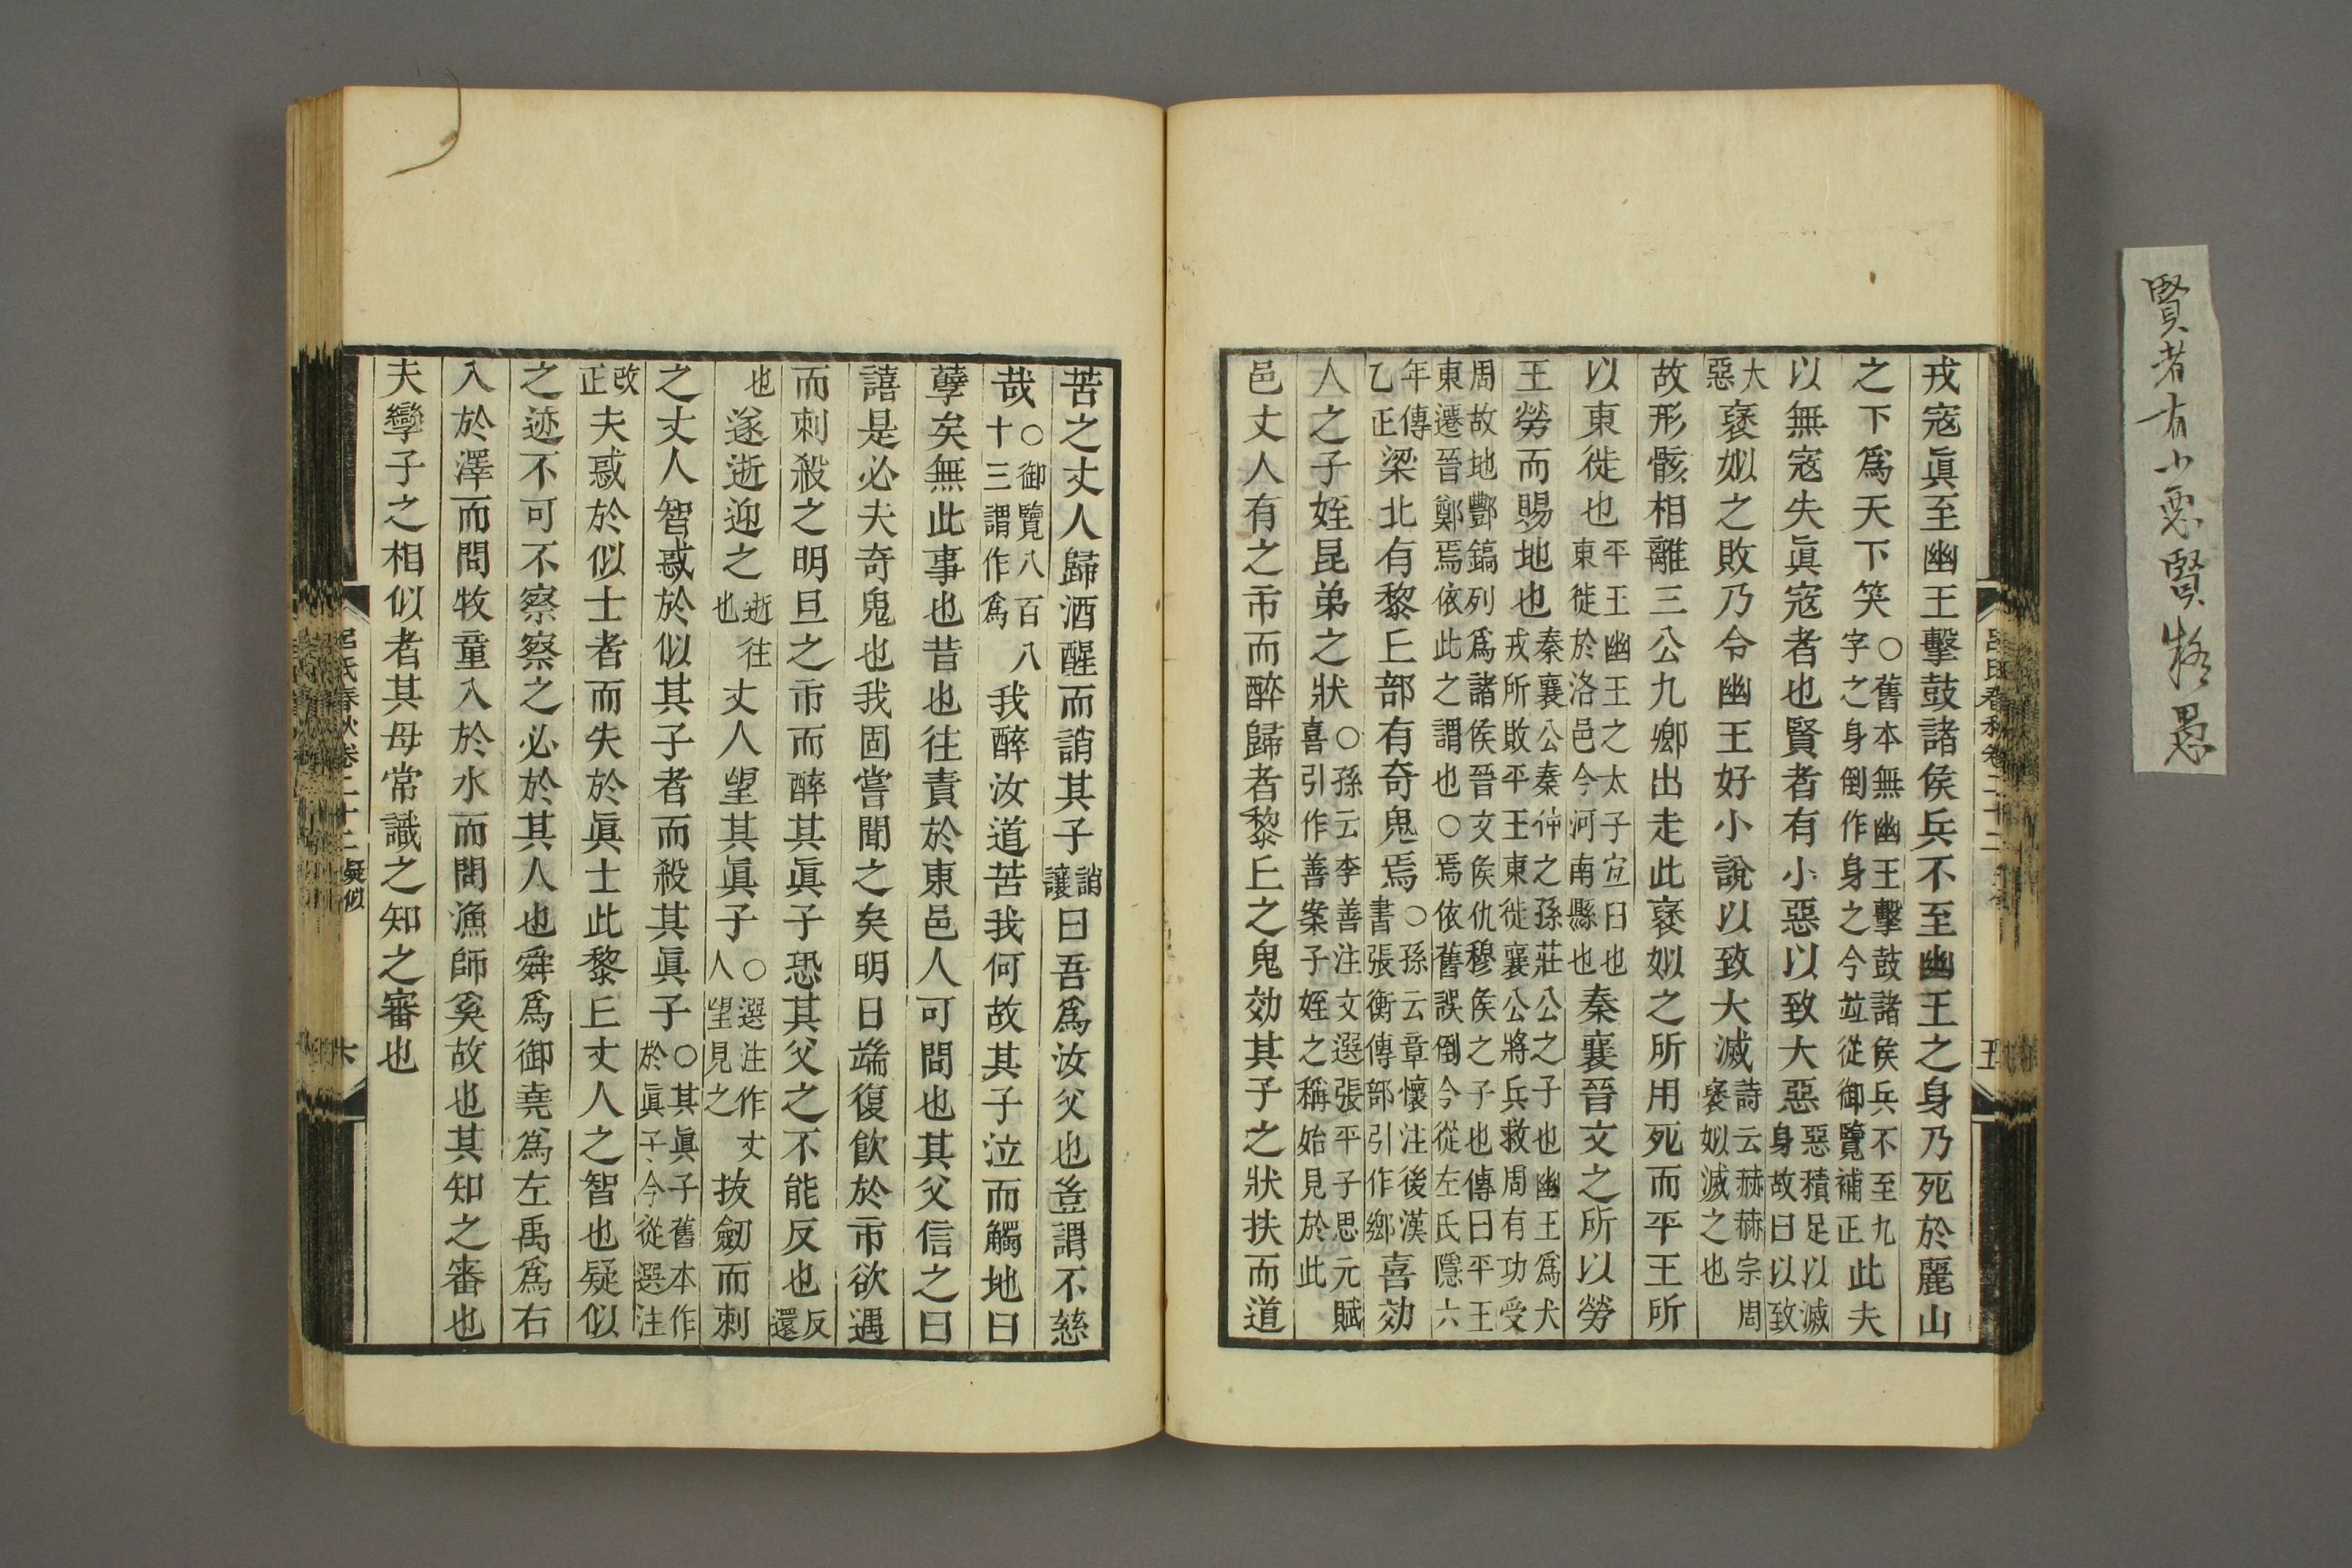 戎寇眞至幽王擊鼓諸侯兵不至幽王之身乃死於麗山
之下爲天下笑○舊本無幽王擊鼓諸侯兵不至九字之身倒作身之今竝從御覽補正此夫
以無寇失眞寇者也賢者有小惡以致大惡惡積足以滅身故曰以致
大惡褒姒之敗乃令幽王好小說以致大滅詩云赫赫宗周褒姒滅之也
故形骸相離三公九卿出走此褒姒之所用死而平王所
以東徙也平王幽王之太子宜臼也東徙於洛邑今河南縣也秦襄晉文之所以勞
王勞而賜地也秦襄公秦仲之孫莊公之子也幽王爲犬戎所敗平王東徙襄公將兵救周有功受
周故地酆鎬列爲諸侯晉文侯仇穆侯之子也傳曰平王東遷晉鄭焉依此之謂也○焉依舊誤倒今從左氏隱六
年傳乙正梁北有黎丘部有奇鬼焉○孫云章懷注後漢書張衡傳部引作鄉喜効
人之子姪昆弟之狀○孫云李善注文選張平子思元賦喜引作善案子姪之稱始見於此
邑丈人有之市而醉歸者黎丘之鬼効其子之狀扶而道
苦之丈人歸酒醒而誚其子誚讓曰吾爲汝父也豈謂不慈
哉○御覽八百八十三謂作爲我醉汝道苦我何故其子泣而觸地曰
孽矣無此事也昔也往責於東邑人可問也其父信之曰
譆是必夫奇鬼也我固嘗聞之矣明日端復飮於市欲遇
而刺殺之明旦之市而醉其眞子恐其父之不能反也反還
也遂逝迎之逝往也丈人望其眞子○選注作丈人望見之拔劒而刺
之丈人智惑於似其子者而殺其眞子○其眞子舊本作於眞子今從選注
改正夫惑於似士者而失於眞士此黎丘丈人之智也疑似
之迹不可不察察之必於其人也舜爲御堯爲左禹爲右
入於澤而問牧童入於水而問漁師奚故也其知之審也
夫孿子之相似者其母常識之知之審也
呂氏春秋卷二十二
五
呂氏春秋卷二十二 疑似
六
賢者有小惡賢
愚